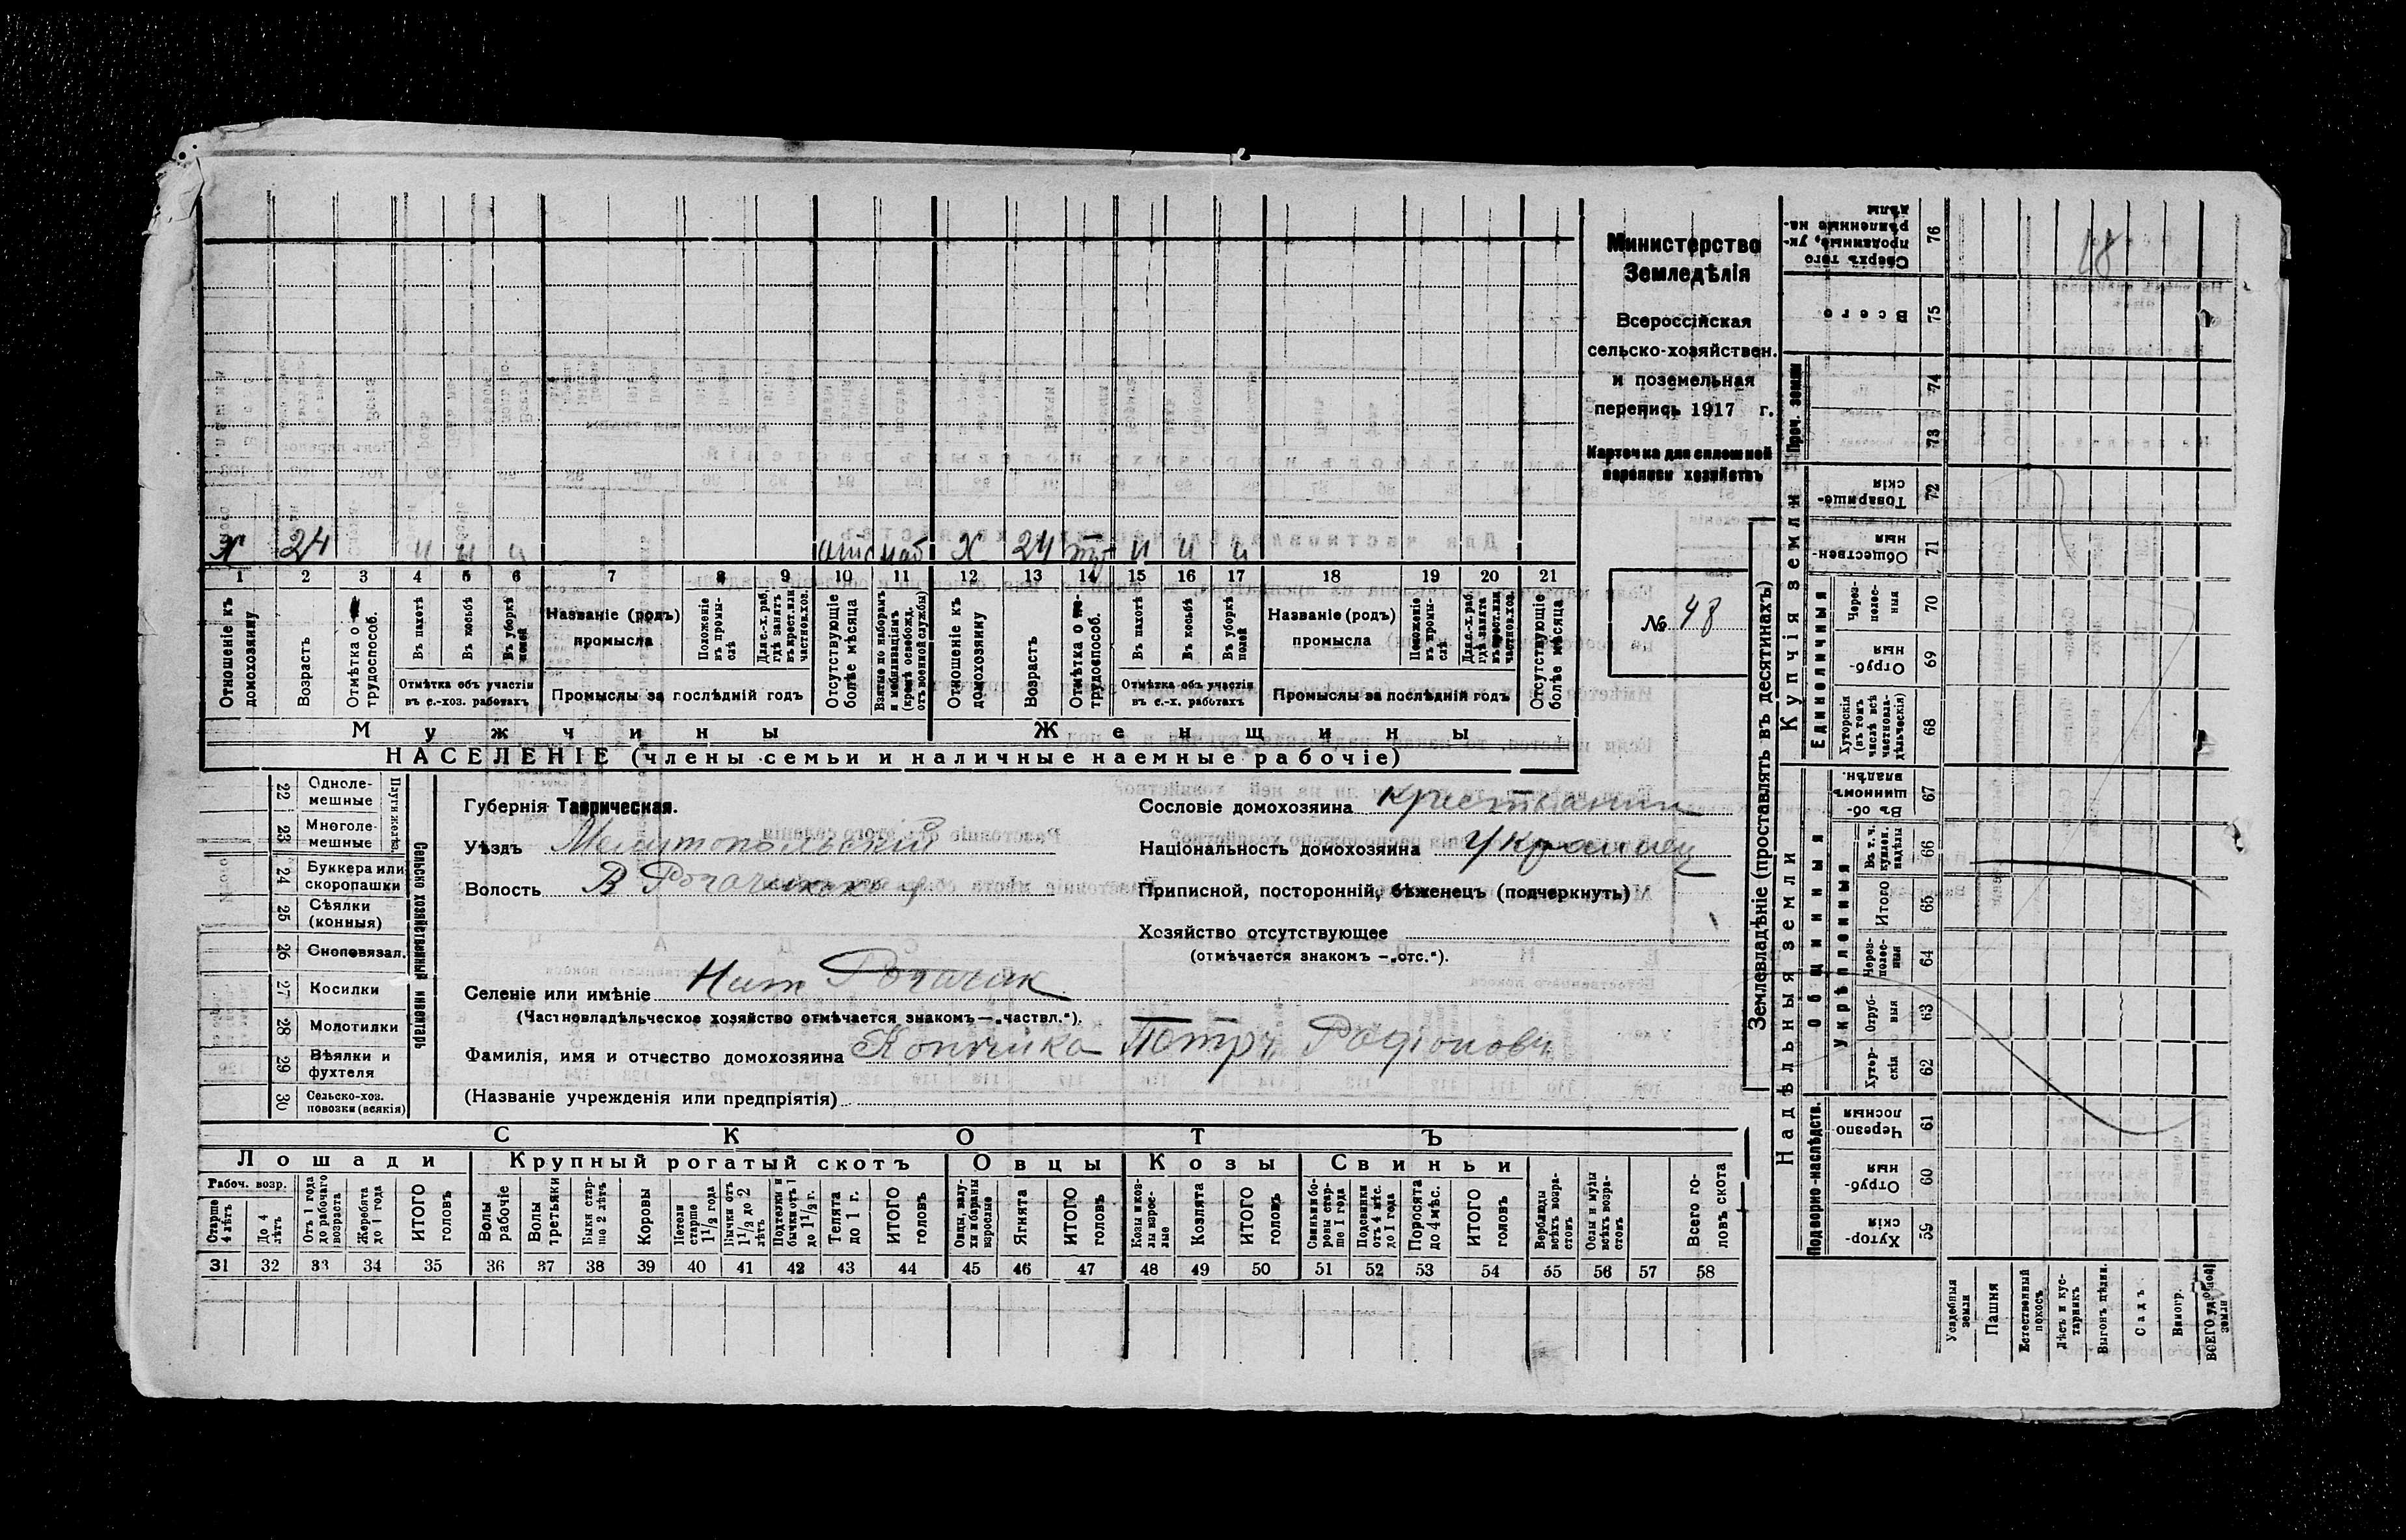 Министерство
Земледѣлія
Всероссійская
сельско-хозяйствен.
и поземельная
перепись 1917 г.
Карточка для сплошной
переписи хозяйствъ
№ 48
Х 24 и и и отс моб Х 24 тр и и и
1 2 3 4 5 6 7 8 9 10 11 12 13 14 15 16 17 18 19 20 21
Отношеніе къ домохозяину
Возрастъ
Отмѣтка о трудоспособ.
Въ пахотѣ
Въ косьбѣ
Въ уборкѣ полей
Отмѣтка объ участіи
въ с.-хоз. работахъ
Названіе (родъ)
промысла
Положеніе въ промыслѣ
Для с.-х. раб. гдѣ занятъ въ крест. или частнов. хоз.
Промыслы за послѣдній годъ
Отсутствующіе болѣе мѣсяца
Взятые по наборамъ и мобилизаціямъ (кромѣ освобожд. отъ военной службы)
Отношеніе къ домохозяину
Возрастъ
Отмѣтка о трудоспособ.
Въ пахотѣ
Въ косьбѣ
Въ уборкѣ полей
Отмѣтка объ участіи
въ с.-х. работахъ
Названіе (родъ)
промысла
Положеніе въ промыслѣ
Для с.-х. раб. гдѣ занята въ крест. или частнов. хоз.
Промыслы за послѣдній годъ
Отсутствующіе болѣе мѣсяца
Мужчины Женщины
НАСЕЛЕНІЕ (члены семьи и наличные наемные рабочіе)
Сельско хозяйственный инвентарь
Плуги желѣз.
22 Одноле-
мешные
23 Многоле-
мешные
24 Буккера или
скоропашки
25 Сѣялки
(конныя)
26 Сноповязал.
27 Косилки
28 Молотилки
29 Вѣялки и
фухтеля
30 Сельско-хоз.
повозки (всякія)
Губернія Таврическая.
Уѣздъ Мелитопольскій
Волость В Рогачикская
Селеніе или имѣніе Ниж Рогачик
(Частновладѣльческое хозяйство отмѣчается знакомъ — „частвл.“).
Фамилія, имя и отчество домохозяина Копчика Петръ Родіоновъ
(Названіе учрежденія или предпріятія)
Сословіе домохозяина крестьянин
Національность домохозяина Украинец
Приписной, посторонній, бѣженецъ (подчеркнуть)
Хозяйство отсутствующее
(отмѣчается знакомъ —„отс.“).
СКОТЪ
Лошади Крупный рогатый скотъ Овцы Козы Свиньи
Рабоч. возр.
Старше 4 лѣтъ
До 4 лѣтъ
Отъ 1 года до рабочаго возраста
Жеребята до 1 года
ИТОГО головъ
Волы рабочіе
Волы третьяки
Быки старше 2 лѣтъ
Коровы
Нетели старше 1 1/2 года
Бычки отъ 1 1/2 до 2 лѣтъ
Подтелки и бычки отъ 1 до 1 1/2 г.
Телята до 1 г.
ИТОГО головъ
Овцы, валухи и бараны взрослые
Ягнята
ИТОГО головъ
Козы и козлы взрослые
Козлята
ИТОГО головъ
Свиньи и боровы старше 1 года
Подсвинки отъ 4 мѣс. до 1 года
Поросята до 4 мѣс.
ИТОГО головъ
Верблюды всѣхъ возрастовъ
Ослы и мулы всѣхъ возрастовъ
Всего головъ скота
31 32 33 34 35 36 37 38 39 40 41 42 43 44 45 46 47 48 49 50 51 52 53 54 55 56 57 58
Землевладѣніе (проставлять въ десятинахъ)
Надѣльныя земли Купчія земли
Подворно-наслѣдств.
Общинныя
Укрѣпленныя
Единоличныя
Проч. земли
76 Сверхъ того проданные, укрѣпленные надѣлы
75 Всего
74
73
72 Товарищескія
71 Общественныя
70 Черезполосныя
69 Отрубныя
68 Хуторскія (въ томъ числѣ всѣ частновладѣльческія)
67 Въ общинномъ владѣн.
66 Въ т. ч. куплен. надѣлы
65 Итого
64 Черезполосныя
63 Отрубныя
62 Хуторскія
61 Черезполосныя
60 Отрубныя
59 Хуторскія
Усадебныя земли
Пашня
Естественный покосъ
Лѣсъ и кустарникъ
Выгонъ цѣлин.
Садъ
Виногр.
ВСЕГО удобной земли